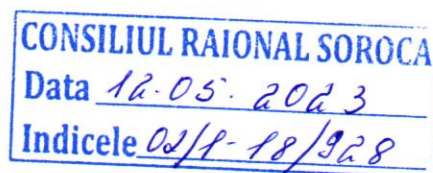 CONSILIUL RAIONAL SOROCA
Data 12.05.2023
Indicele 02/1-18/928